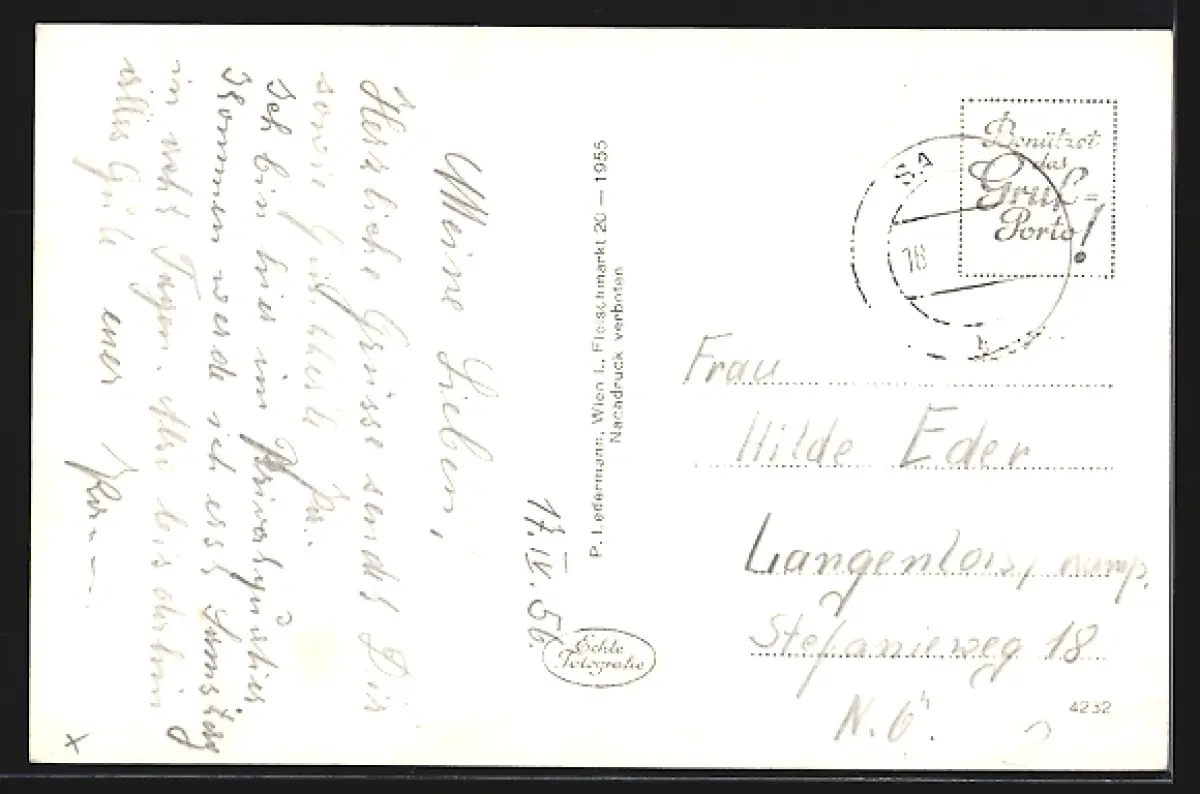 17.IV.56.
Meine Lieben,
Herzliche Grüsse sendet Dir
sowie
Ich bin hier im Privatquartier
Kommen werde ich erst Samstag
in acht Tagen. Also bis dahin
alles Gute euer
P. Ledermann, Wien I., Fleischmarkt 20 — 1955
Nachdruck verboten
Echte
Fotografie
Benützet
das
Gruß=
Porto!
SA
Frau
Hilde Eder
Langenlois, Kamp.
Stefanieweg 18
N.Ö.
4232
x